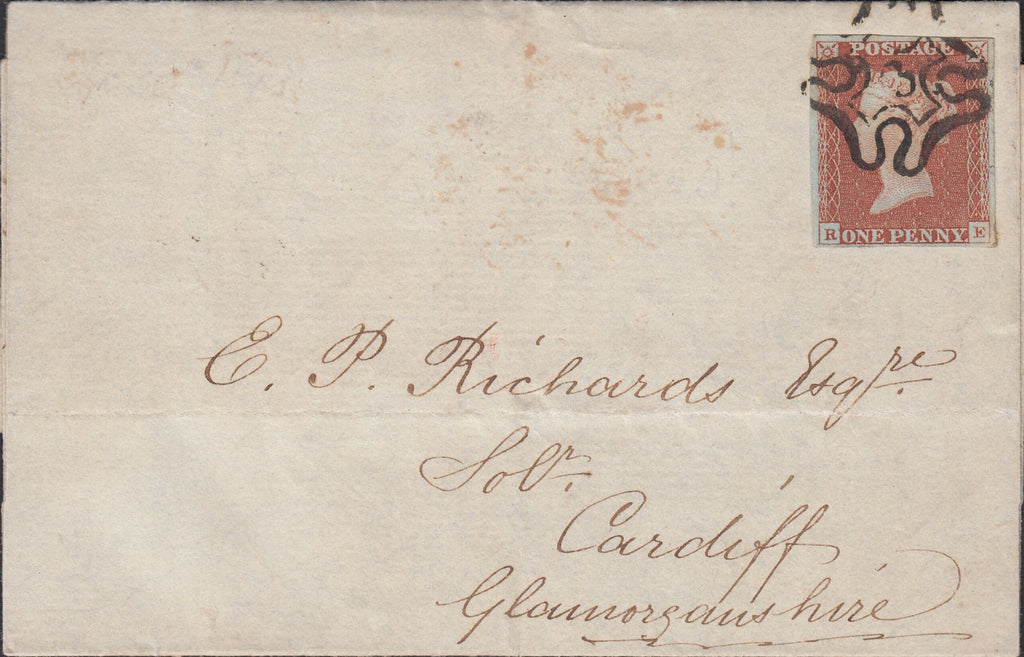 POSTAGE
3
R ONE PENNY. E
E. P. Richards Esqre.
Solr.
Cardiff
Glamorganshire